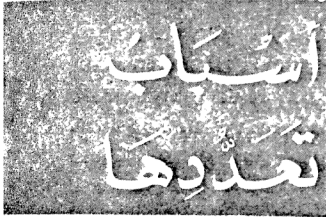 أَسْبَابُ
تَعَدُّدِهَا